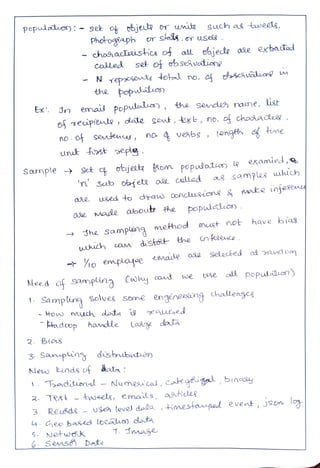 population :- set of objects or units such as tweets,
photograph or stars or users.
- characteristics of all objects are extracted
called set of observations
- N represents total no. of observations in
the population
Ex: In email population, the senders name, list
of recipients, date sent, text, no. of characters,
no. of sentences, no of verbs, length of time
until first reply.
Sample → Set of objects from population is examined,
'n' sub objects are called as samples which
are used to draw conclusions & make inferences
are made about the population.
→ The sampling method must not have bias
which can distort the inference.
→ 1/10 employee emails are selected at random
Need of sampling (why cant we use all population)
1. Sampling solves some engineering challenges
- How much data is required
- Hadoop handle large data
2. Bias
3. Sampling distribution
New kinds of data :
1. Traditional - Numerical, categorical, binary
2. Text - tweets, emails, articles
3. Records - user level data, timestamped event, json log
4. Geo based location data
5. Network 7. Image
6. Sensor Data